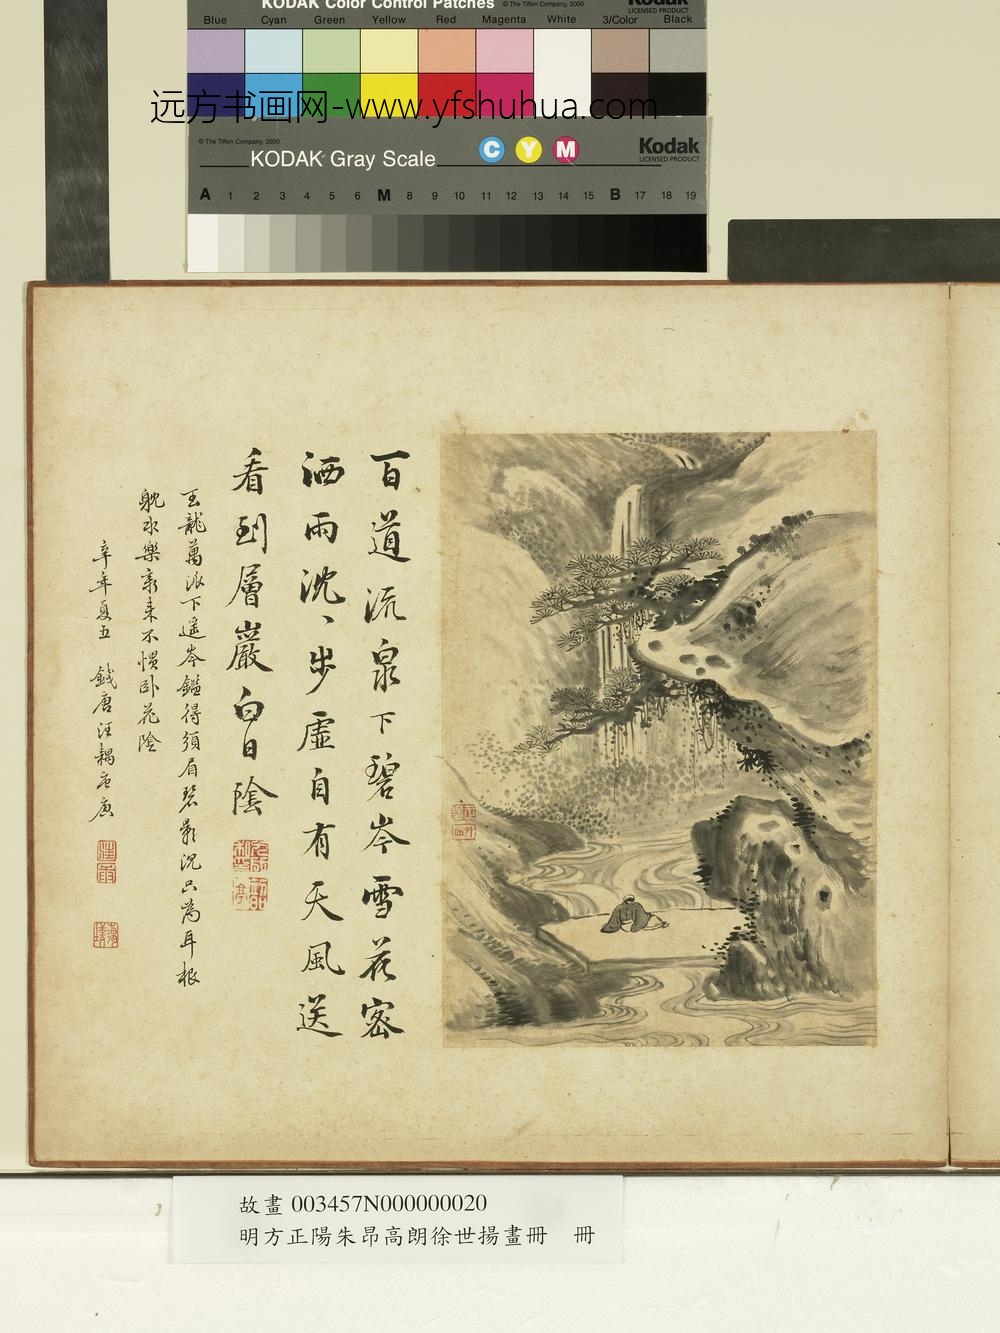 KODAK Color Control Patches
© The Tiffen Company, 2000
Kodak
LICENSED PRODUCT
Blue Cyan Green Yellow Red Magenta White 3/Color Black
远方书画网-www.yfshuhua.com
© The Tiffen Company, 2000
KODAK Gray Scale
C Y M
Kodak
LICENSED PRODUCT
A 1 2 3 4 5 6 M 8 9 10 11 12 13 14 15 B 17 18 19
百道流泉下碧岑雪花密
洒雨沈丶步虛自有天風送
看到層巖白日陰
玉龍萬派下遥岑鑑得須眉碧影沉只為耳根
躭水樂新来不慣卧花陰
辛年夏五 錢唐汪耦唐庚
故畫 003457N000000020
明方正陽朱昂高朗徐世揚畫冊 冊